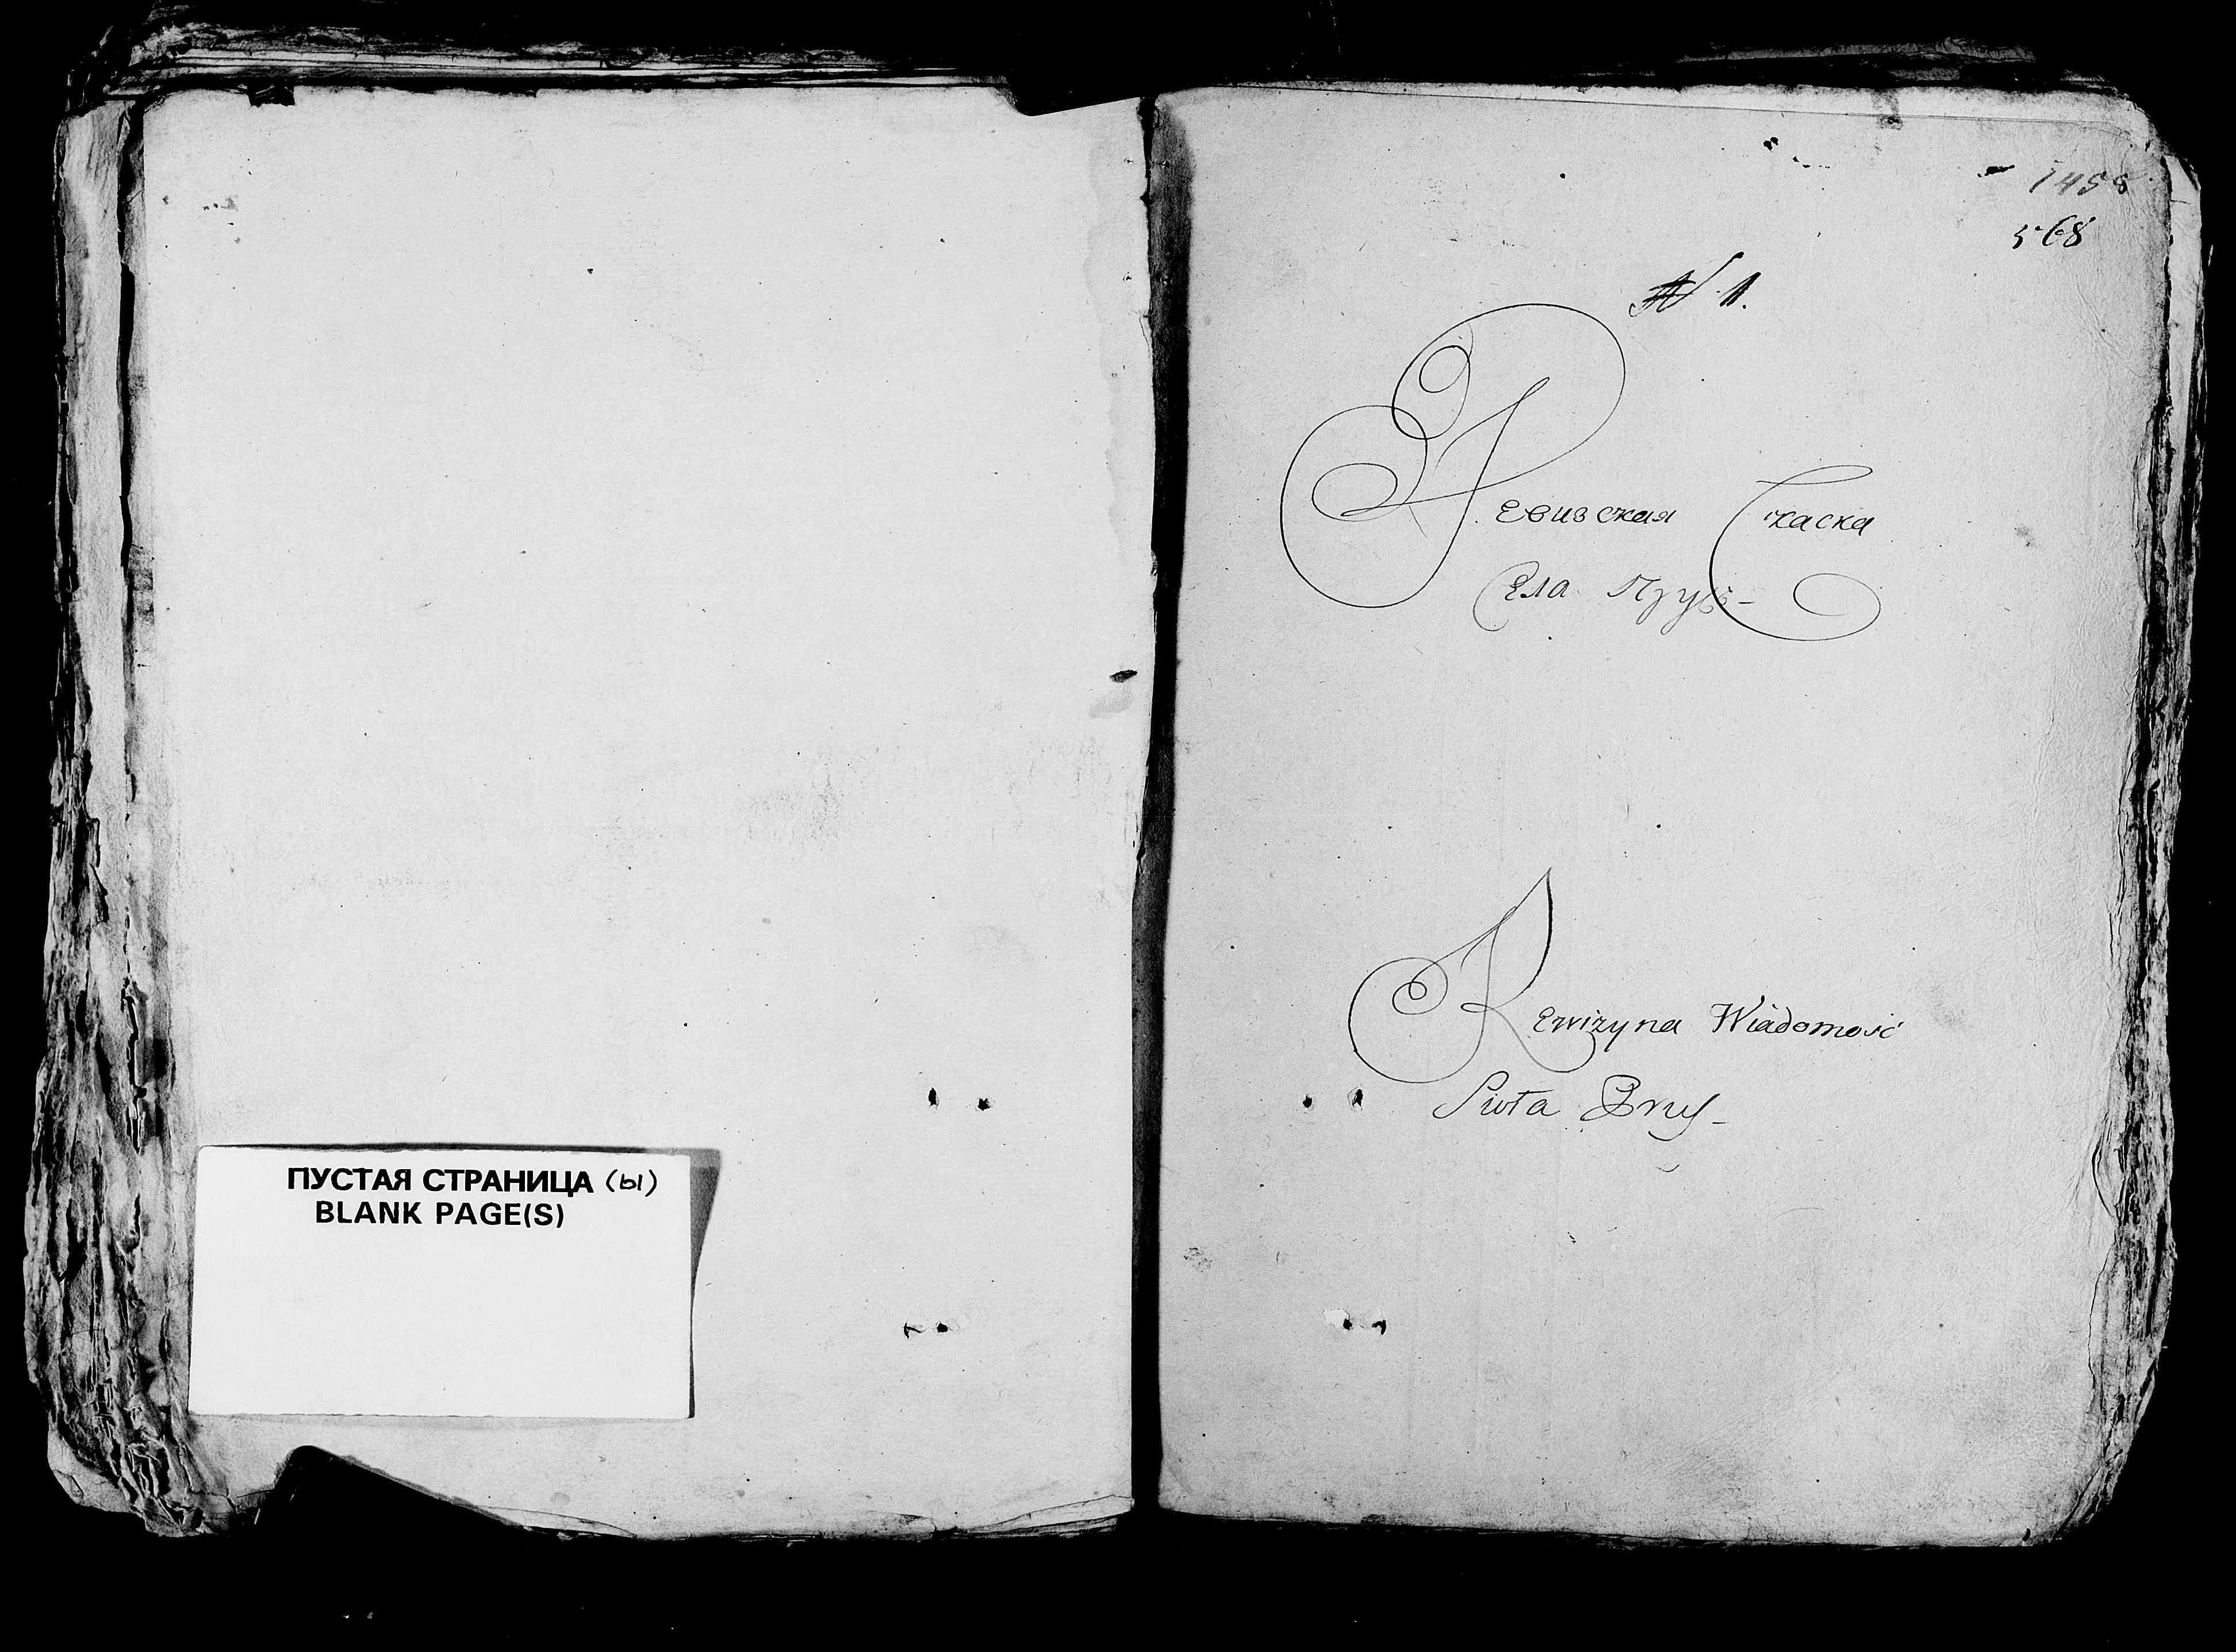 ПУСТАЯ СТРАНИЦА (ы)
BLANK PAGE(S)
1458
568
№ 1.
Ревизская Скаска
Села
Rewizyna Wiadomość
Sioła Brus